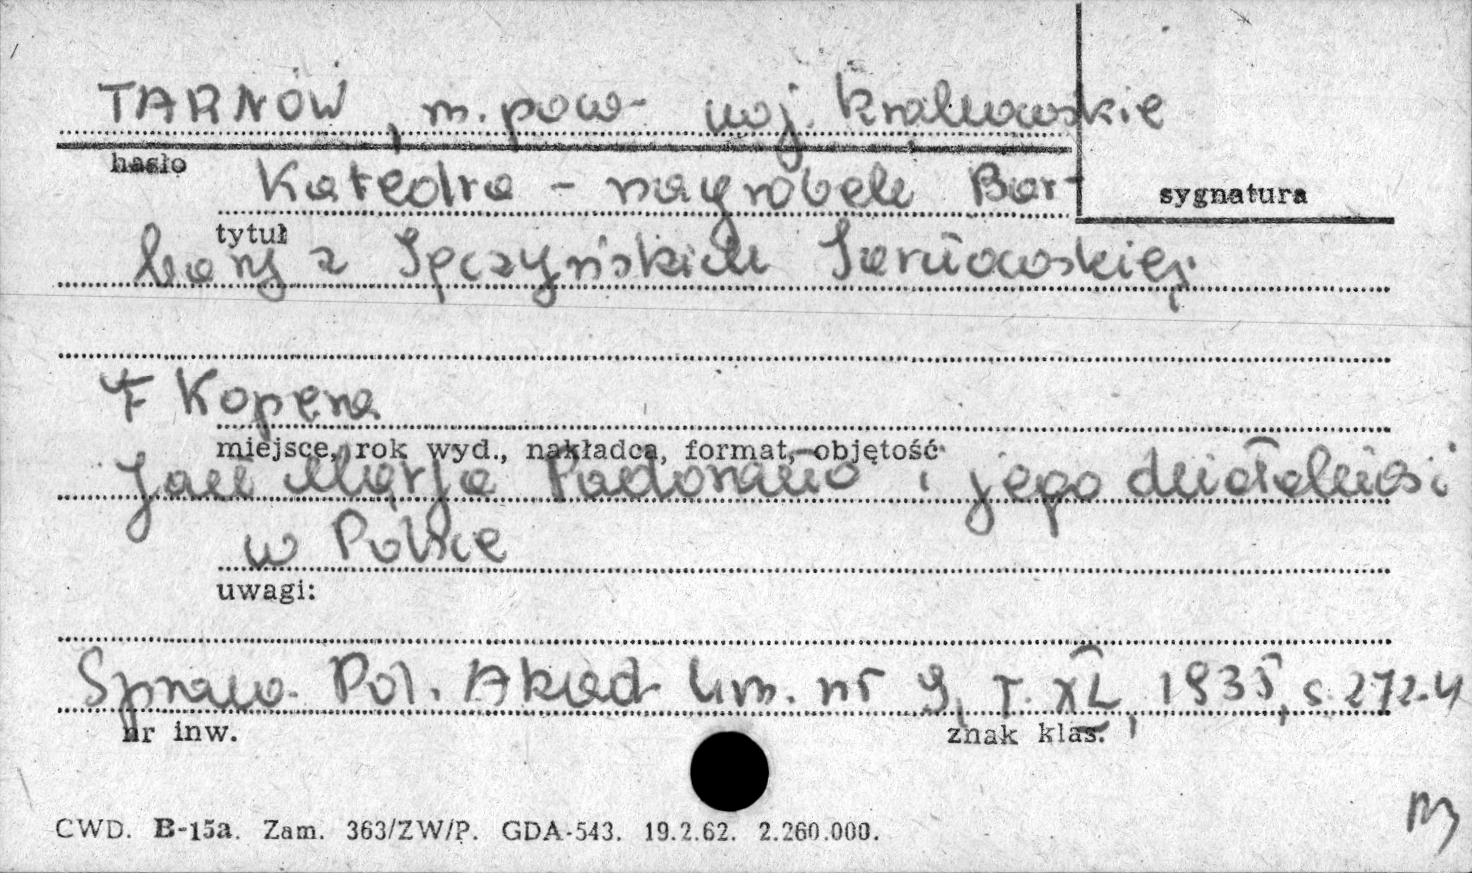 TARNÓW, m. pow. woj. krakowskie
hasło
Katedra - nagrobek Bar-
sygnatura
tytuł
bary z Tęczyńskich Tarnowskiej
F Kopera
miejsce, rok wyd., nakładca, format, objętość
Jan Marja Padovano i jego działalność
w Polsce
uwagi:
Spraw. Pol. Akad Um. nr 9, T. XL, 1935, s. 272-4
nr inw.
znak klas.
CWD. B-15a. Zam. 363/ZW/P. GDA-543. 19.2.62. 2.260.000.